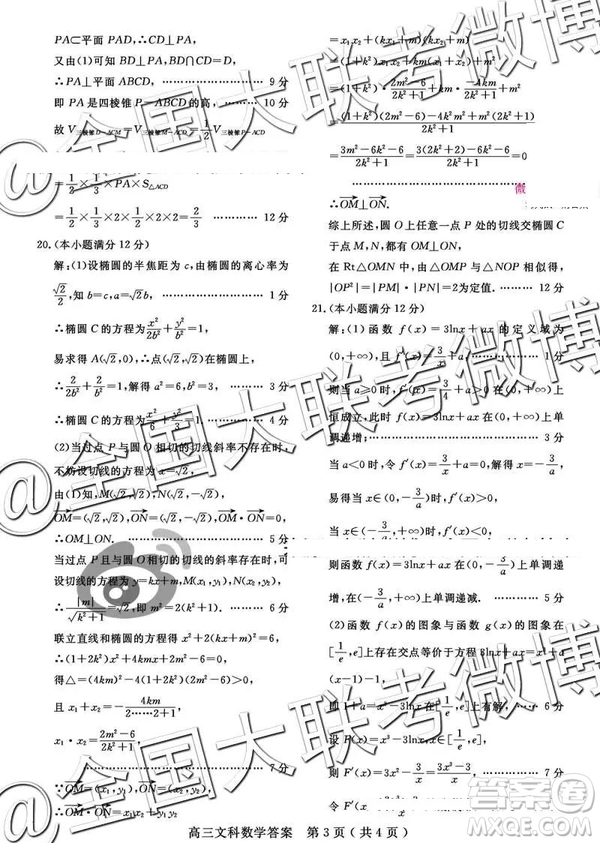 PA⊂平面 PAD,∴CD⊥PA,
又由(1)可知 BD⊥PA,BD∩CD=D,
∴PA⊥平面 ABCD, ………… 9 分
即 PA 是四棱锥 P-ABCD 的高, ………… 10 分
故 V三棱锥D-ACM=V三棱锥M-ACD=1/2 V三棱锥P-ACD
=1/2×1/3×PA×S△ACD
=1/2×1/3×2×2=2/3. ………… 12 分
20.(本小题满分 12 分)
解:(1)设椭圆的半焦距为 c,由椭圆的离心率为
√2/2,知 b=c,a=√2b, ………… 1 分
∴椭圆 C 的方程为 x²/2b²+y²/b²=1,
易求得 A(√2,0),∴点(√2,√2)在椭圆上,
∴2/2b²+2/b²=1,解得 a²=6,b²=3,
∴椭圆 C 的方程为 x²/6+y²/3=1. ………… 4 分
(2)当过点 P 与圆 O 相切的切线斜率不存在时,
不妨设切线的方程为 x=√2,
由(1)知,M(√2,√2),N(√2,-√2),
OM→=(√2,√2),ON→=(√2,-√2),OM→·ON→=0,
∴OM⊥ON. ………… 5 分
当过点 P 且与圆 O 相切的切线的斜率存在时,可
设切线的方程为 y=kx+m,M(x₁,y₁),N(x₂,y₂),
∴|m|/√(k²+1)=√2,即 m²=2(k²+1). ………… 6 分
联立直线和椭圆的方程得 x²+2(kx+m)²=6,
∴(1+2k²)x²+4kmx+2m²-6=0,
得△=(4km)²-4(1+2k²)(2m²-6)>0,
且 x₁+x₂=-4km/2……2+1,
x₁·x₂=2m²-6/2k²+1 ………… 7 分
∵OM→=(x₁,y₁),ON→=(x₂,y₂),
∴OM→·ON→=x₁x₂+y₁y₂
=x₁x₂+(kx₁+m)(kx₂+m)
=(1+k²)x₁x₂+km(x₁+x₂)+m²
=(1+k²)·2m²-6/2k²+1+km·-4km/2k²+1+m²
=(1+k²)(2m²-6)-4k²m²+m²(2k²+1)/2k²+1
=3m²-6k²-6/2k²+1=3(2k²+2)-6k²-6/2k²+1=0
微
∴OM→⊥ON→.
综上所述,圆 O 上任意一点 P 处的切线交椭圆 C
于点 M,N,都有 OM⊥ON,
在 Rt△OMN 中,由△OMP 与△NOP 相似得,
|OP²|=|PM|·|PN|=2为定值. ……… 12 分
21.(本小题满分 12 分)
解:(1)函数 f(x)=3lnx+ax 的定义域为
(0,+∞),f′(x)=3/x+a. ………… 1 分
则当 a≥0 时,f′(x)=3/x+a>0 在(0,+∞)上
恒成立,此时 f(x)=3lnx+ax 在(0,+∞)上单
调递增; ………… 3 分
当 a<0 时,令 f′(x)=3/x+a=0,解得 x=-3/a,
易得当 x∈(0,-3/a)时,f′(x)>0,
当 x∈(-3/a,+∞)时,f′(x)<0,
则函数 f(x)=3lnx+ax 在(0,-3/a)上单调递
增,在(-3/a,+∞)上单调递减. ………… 5 分
(2)函数 f(x)的图象与函数 g(x)的图象在
[1/e,e]上存在交点等价于方程 3lnx+ax=x³+a
(x-1)-1,
即 1+a=x³-3lnx 在[1/e,e]上有解.
设 F(x)=x³-3lnx,x∈[1/e,e],
则 F′(x)=3x²-3/x=3x³-3/x, ………… 7 分
令 F′(x)=3x³-3/x
高三文科数学答案 第 3 页(共 4 页)
@全国大联考微博
@全国大联考微博
@全国大联考微博
答案圈